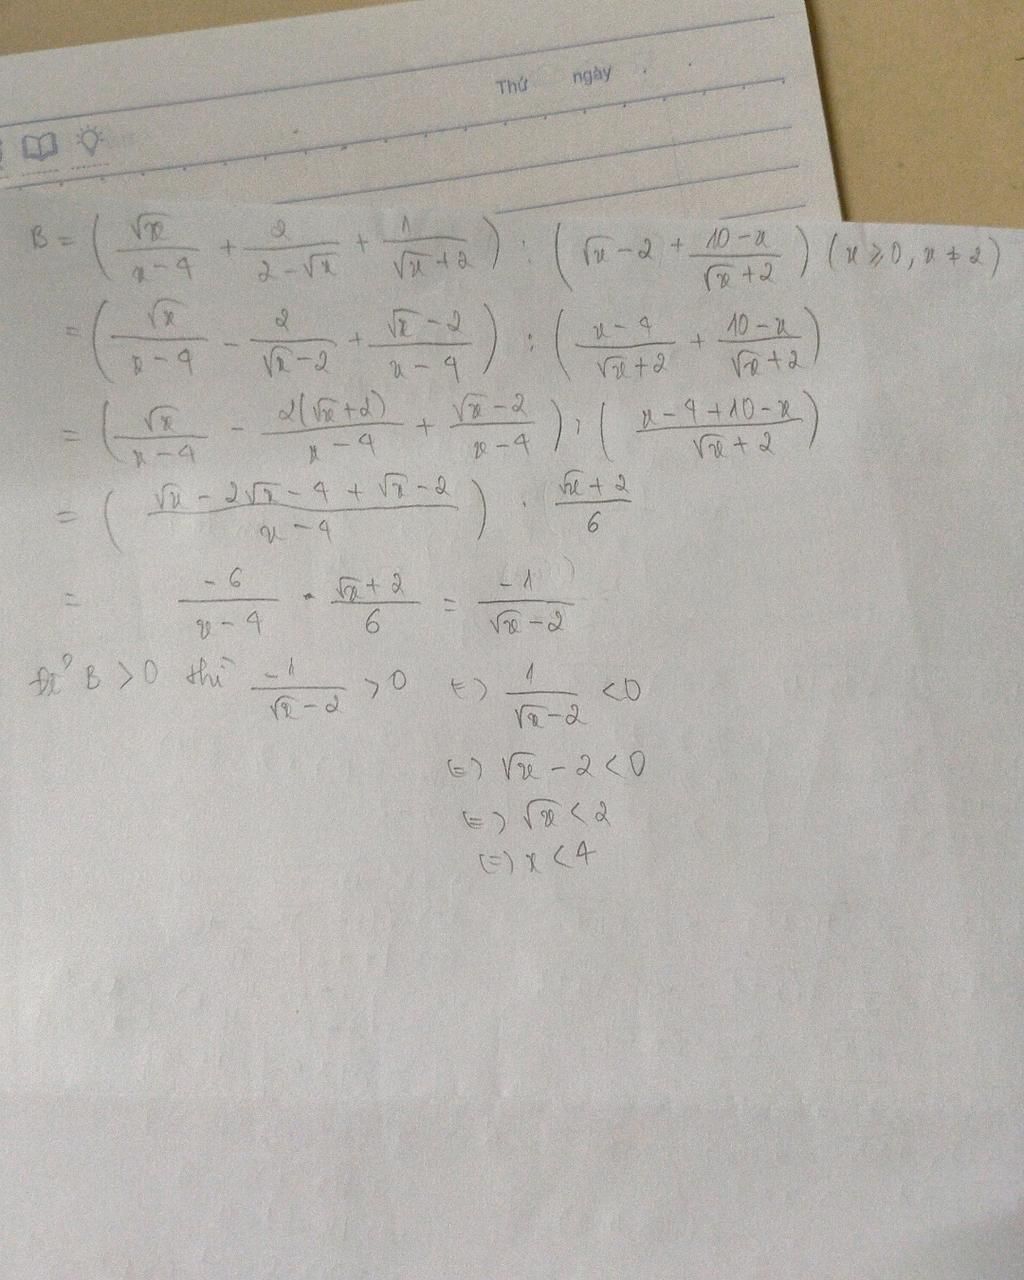 Thứ ngày . .
B = ( √x / (x - 4) + 2 / (2 - √x) + 1 / (√x + 2) ) : ( √x - 2 + (10 - x) / (√x + 2) ) ( x ≥ 0, x ≠ 2 )
= ( √x / (x - 4) - 2 / (√x - 2) + (√x - 2) / (x - 4) ) : ( (x - 4) / (√x + 2) + (10 - x) / (√x + 2) )
= ( √x / (x - 4) - 2(√x + 2) / (x - 4) + (√x - 2) / (x - 4) ) : ( (x - 4 + 10 - x) / (√x + 2) )
= ( (√x - 2√x - 4 + √x - 2) / (x - 4) ) . (√x + 2) / 6
= -6 / (x - 4) . (√x + 2) / 6 = -1 / (√x - 2)
Để B > 0 thì -1 / (√x - 2) > 0 <=> 1 / (√x - 2) < 0
<=> √x - 2 < 0
<=> √x < 2
<=> x < 4